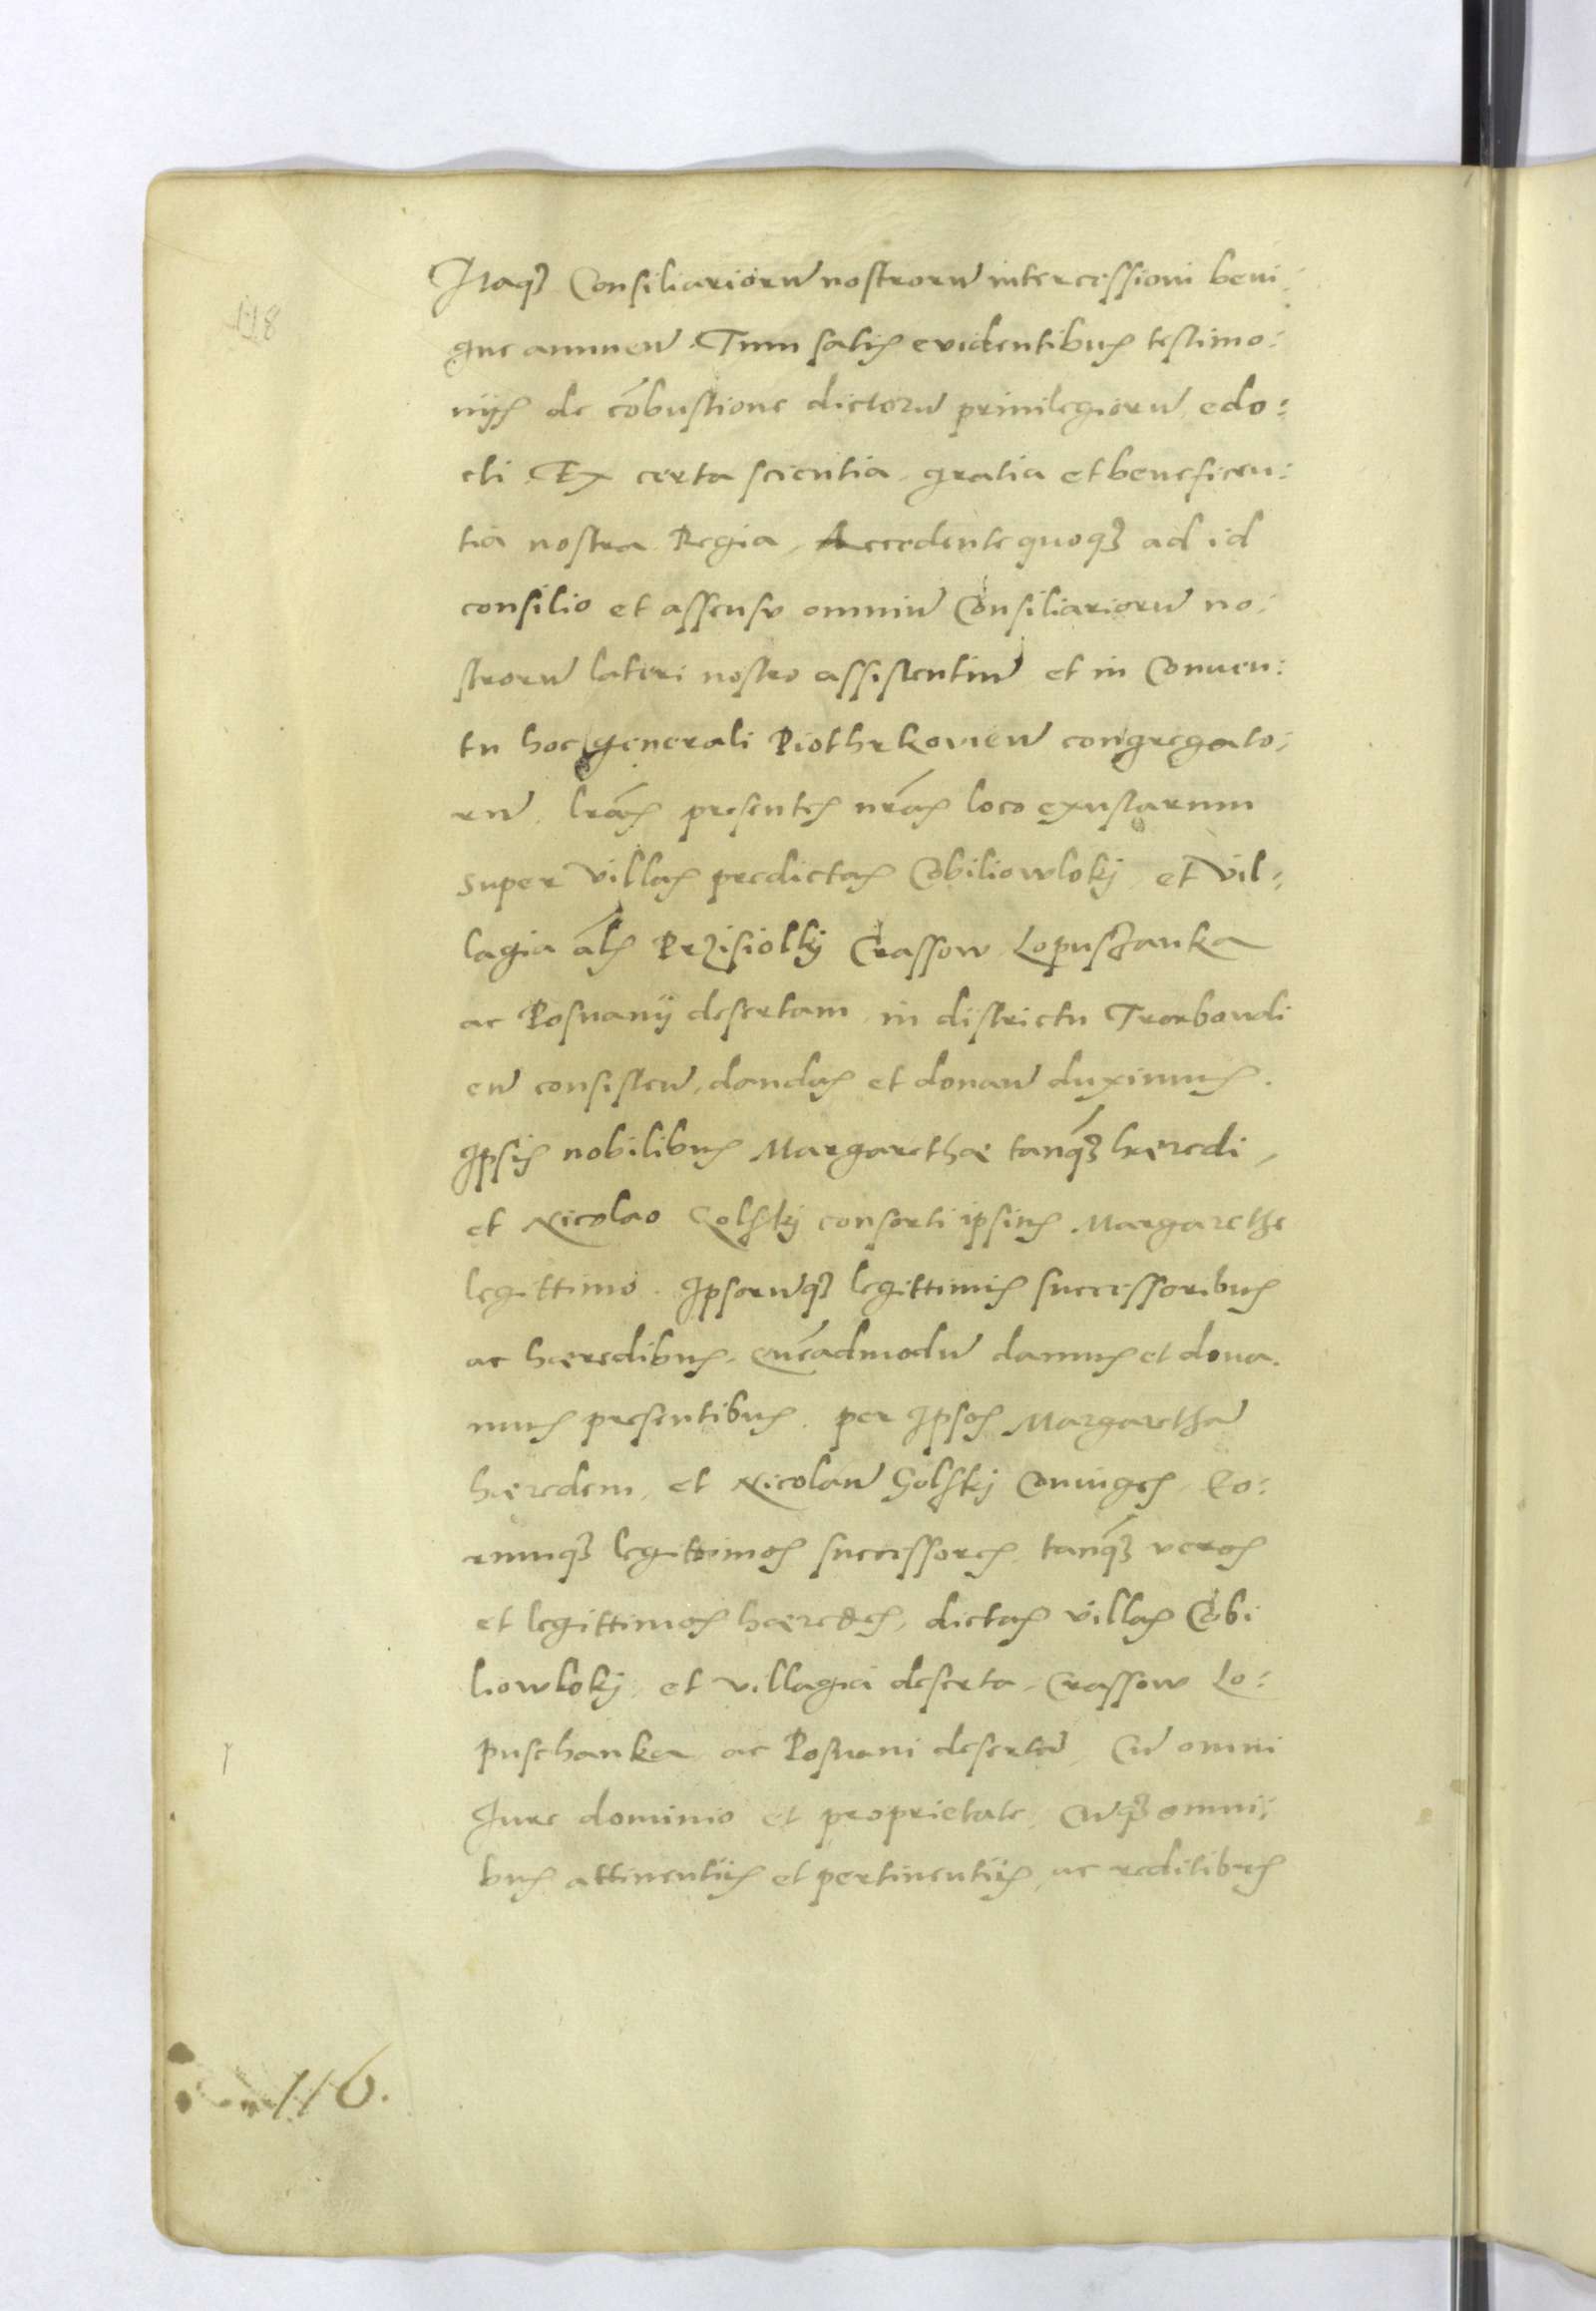 118
Itaqʒ Consiliariorũ nostrorũ intercessioni beni:
gne annuen̄. Tum satis evidentibus testimo:
nijs de cōbustione dictorũ priuilegiorũ edo:
cti. Ex certa scientia, gratia et beneficen:
tia nostra Regia, Accedente quoqʒ ad id
consilio et assensu omniũ Consiliariorũ no:
strorũ lateri nostro assistentiũ et in Conuen:
tu hoc generali Piothrkovien̄ congregato:
rũ, lrās presentes nrās loco exustarum
super villas predictas Cobiliowloky, et vil:
lagia als̄ Przisiolky Crassow Lopuszanka
ac Posuany desertam, in districtu Trembowli
en̄ consisten̄, dandas et donan̄ duximus.
Ipsis nobilibus Margarethæ tanqʒ hæredi,
et Nicolao Golsky consorti ipsius Margarethe
legittimo. Ipsorũqʒ legittimis successoribus
ac hæredibus, quēadmodũ damus et dona.
mus presentibus. per Ipsos Margarethā
hæredem, et Nicolaũ Golsky Coniuges, Eo:
rumqʒ legittimos successores, tanqʒ veros
et legittimos hæredes, dictas villas Cobi
liowloky, et villagia deserta, Crassow Lo:
puschanka, ac Posuani desertā, Cũ omni
Iure dominio et proprietate, Cũqʒ omni:
bus attinentijs et pertinentijs, ac reditibus
116.